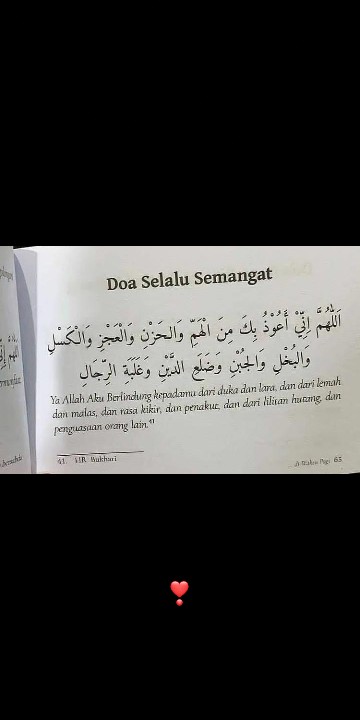 Doa Selalu Semangat
اَللّٰهُمَّ إِنِّيْ أَعُوْذُ بِكَ مِنَ الْهَمِّ وَالْحَزَنِ وَالْعَجْزِ وَالْكَسَلِ
وَالْبُخْلِ وَالْجُبْنِ وَضَلَعِ الدَّيْنِ وَغَلَبَةِ الرِّجَالِ
Ya Allah Aku Berlindung kepadamu dari duka dan lara, dan dari lemah
dan malas, dan rasa kikir, dan penakut, dan dari lilitan hutang, dan
penguasaan orang lain.
HR. Bukhari
Pagi 65